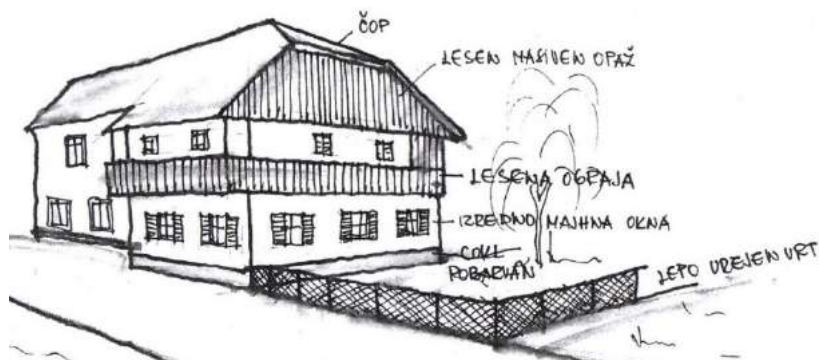 ČOP
LESEN MASIVEN OPAŽ
LESENA OGRAJA
IZREDNO MAJHNA OKNA
COKL
POBARVAN
LEPO UREJEN VRT